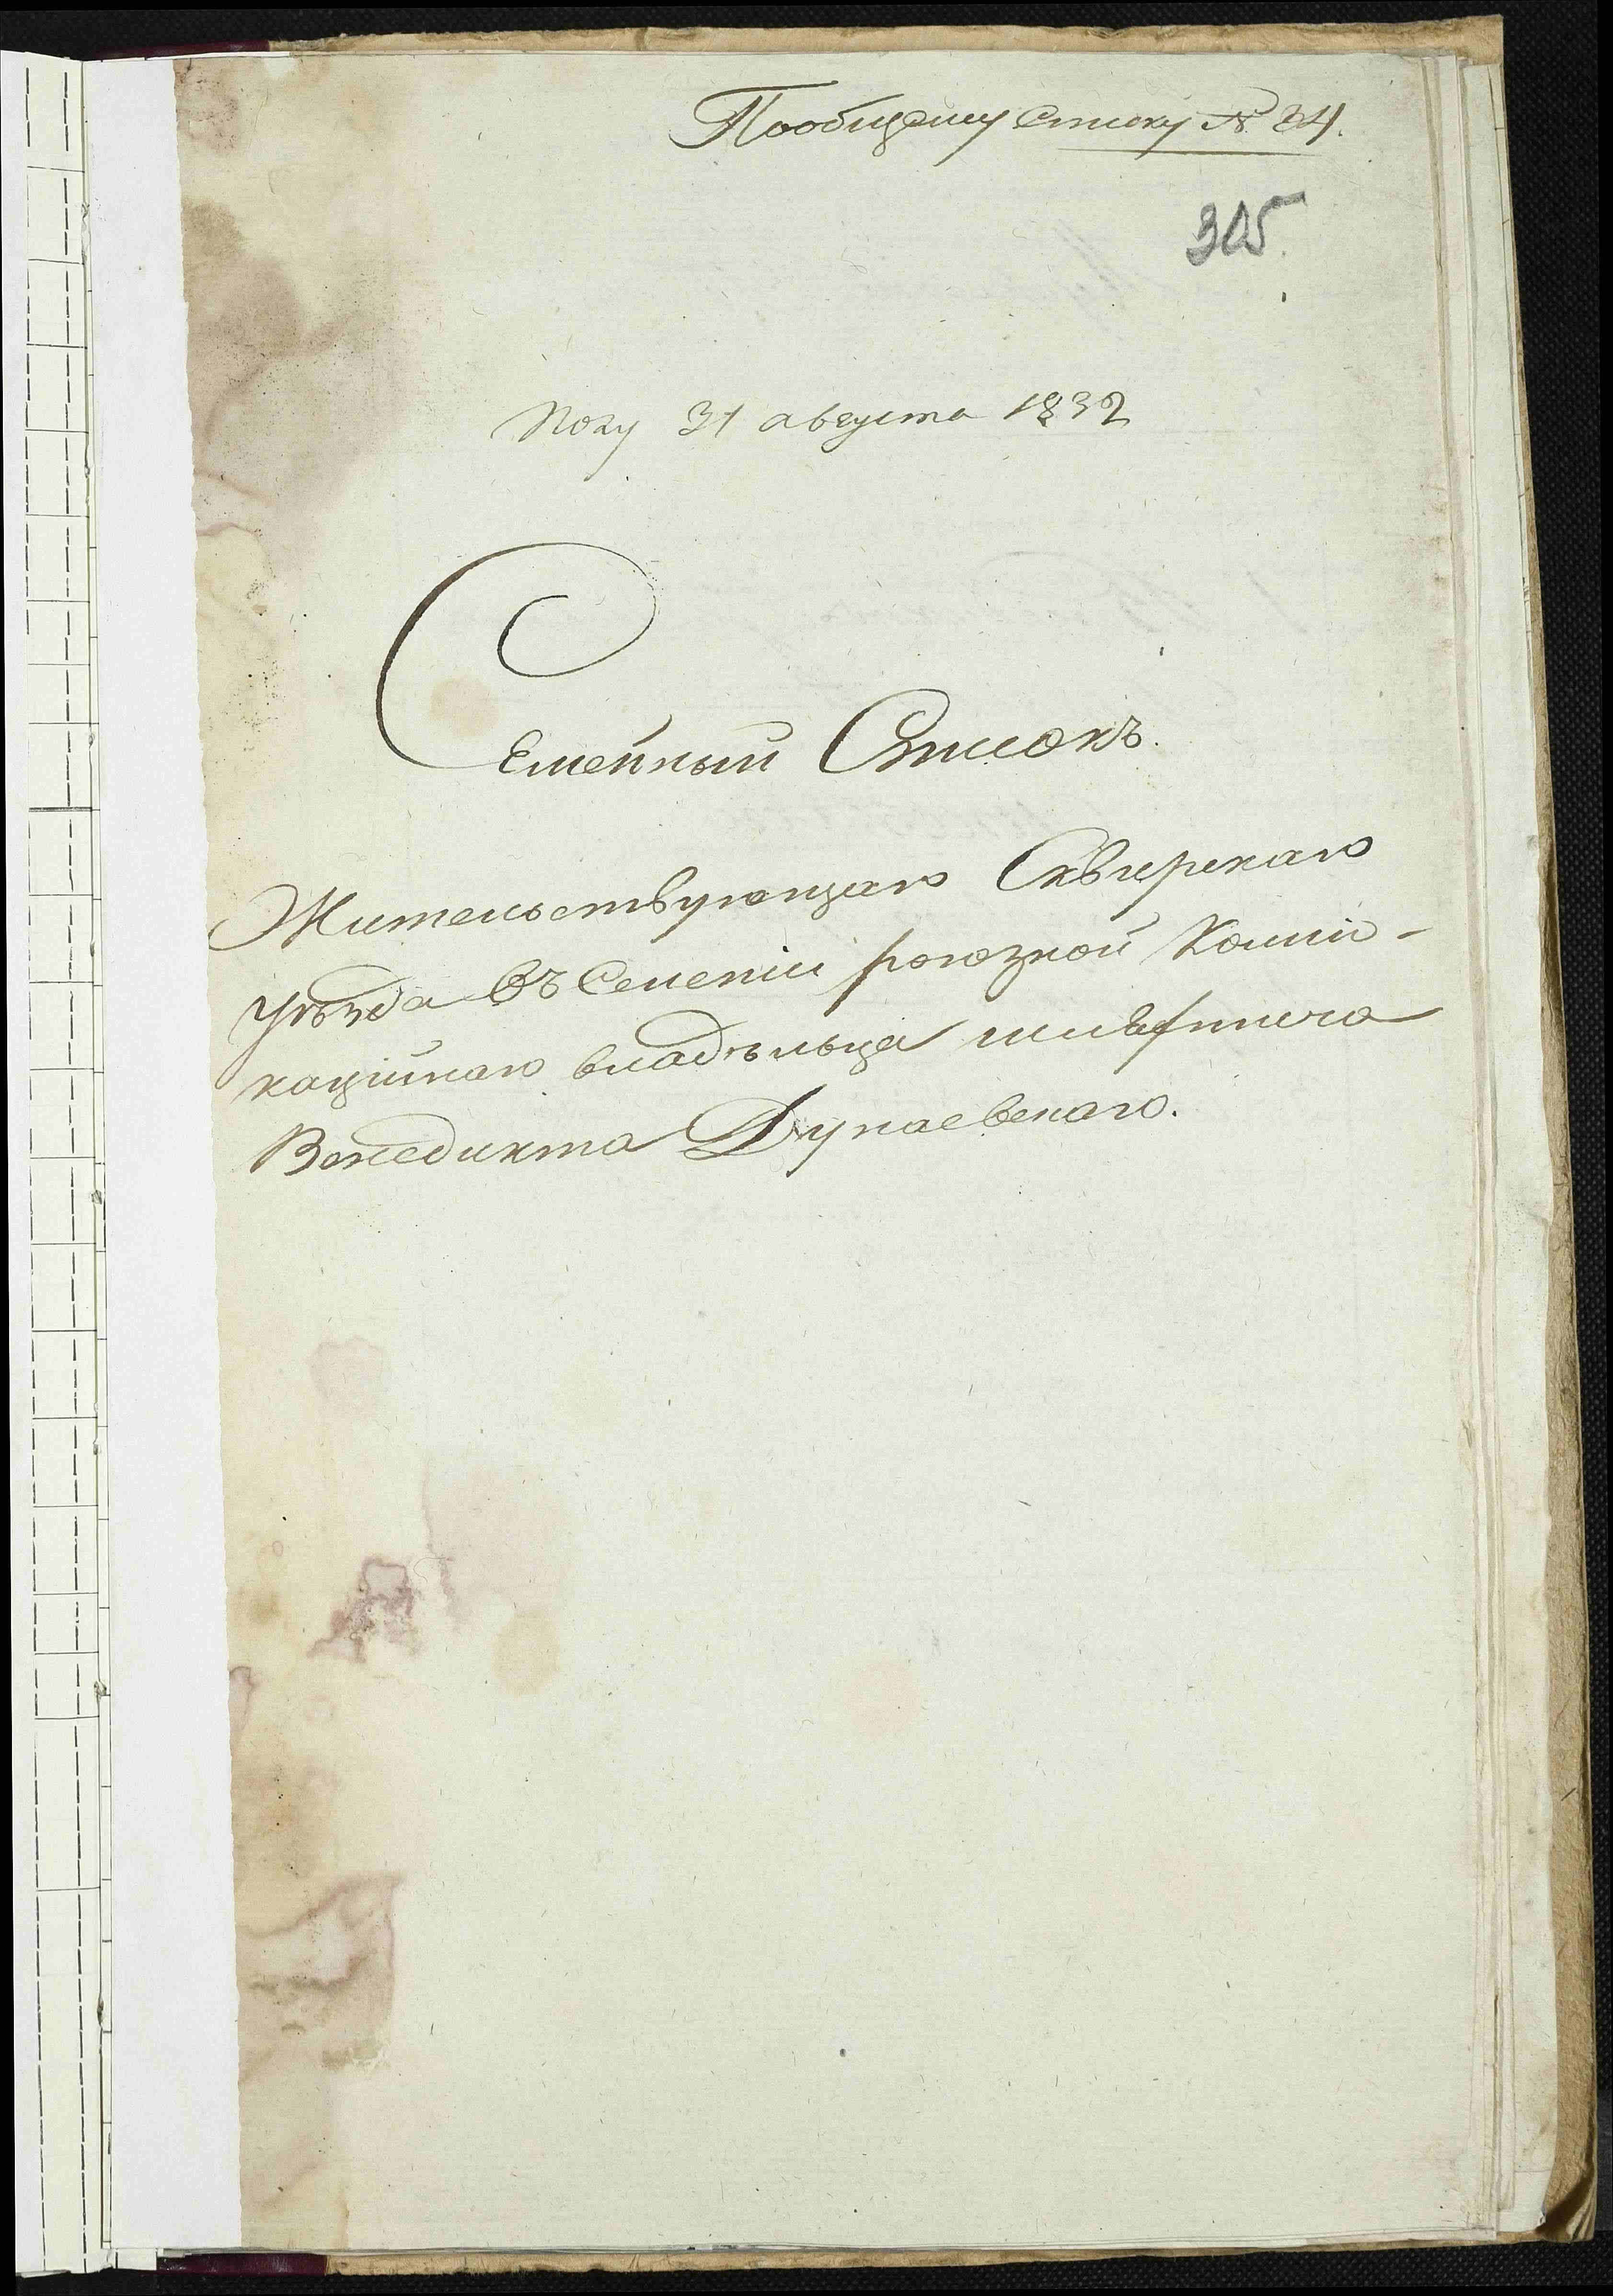 Пообщему списку № 34.
305
31 августа 1832
Семейный Списокъ.
Жительствующаго Сквирскаго
уѣзда въ Селеніи рогозной Комми-
каційнаго владѣльца шляхтича
Венедикта Дунаевскаго.